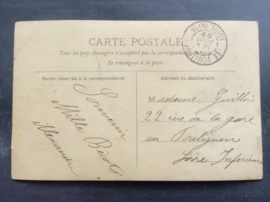 CARTE POSTALE
Tous les pays étrangers n'acceptent pas la correspondance
Se renseigner à la poste
Partie réservée à la correspondance
Adresse du destinataire
Souvenir
Mille
Alexandre
Madame Guillois
22 rue de la gare
au Pouliguen
Loire Inférieure